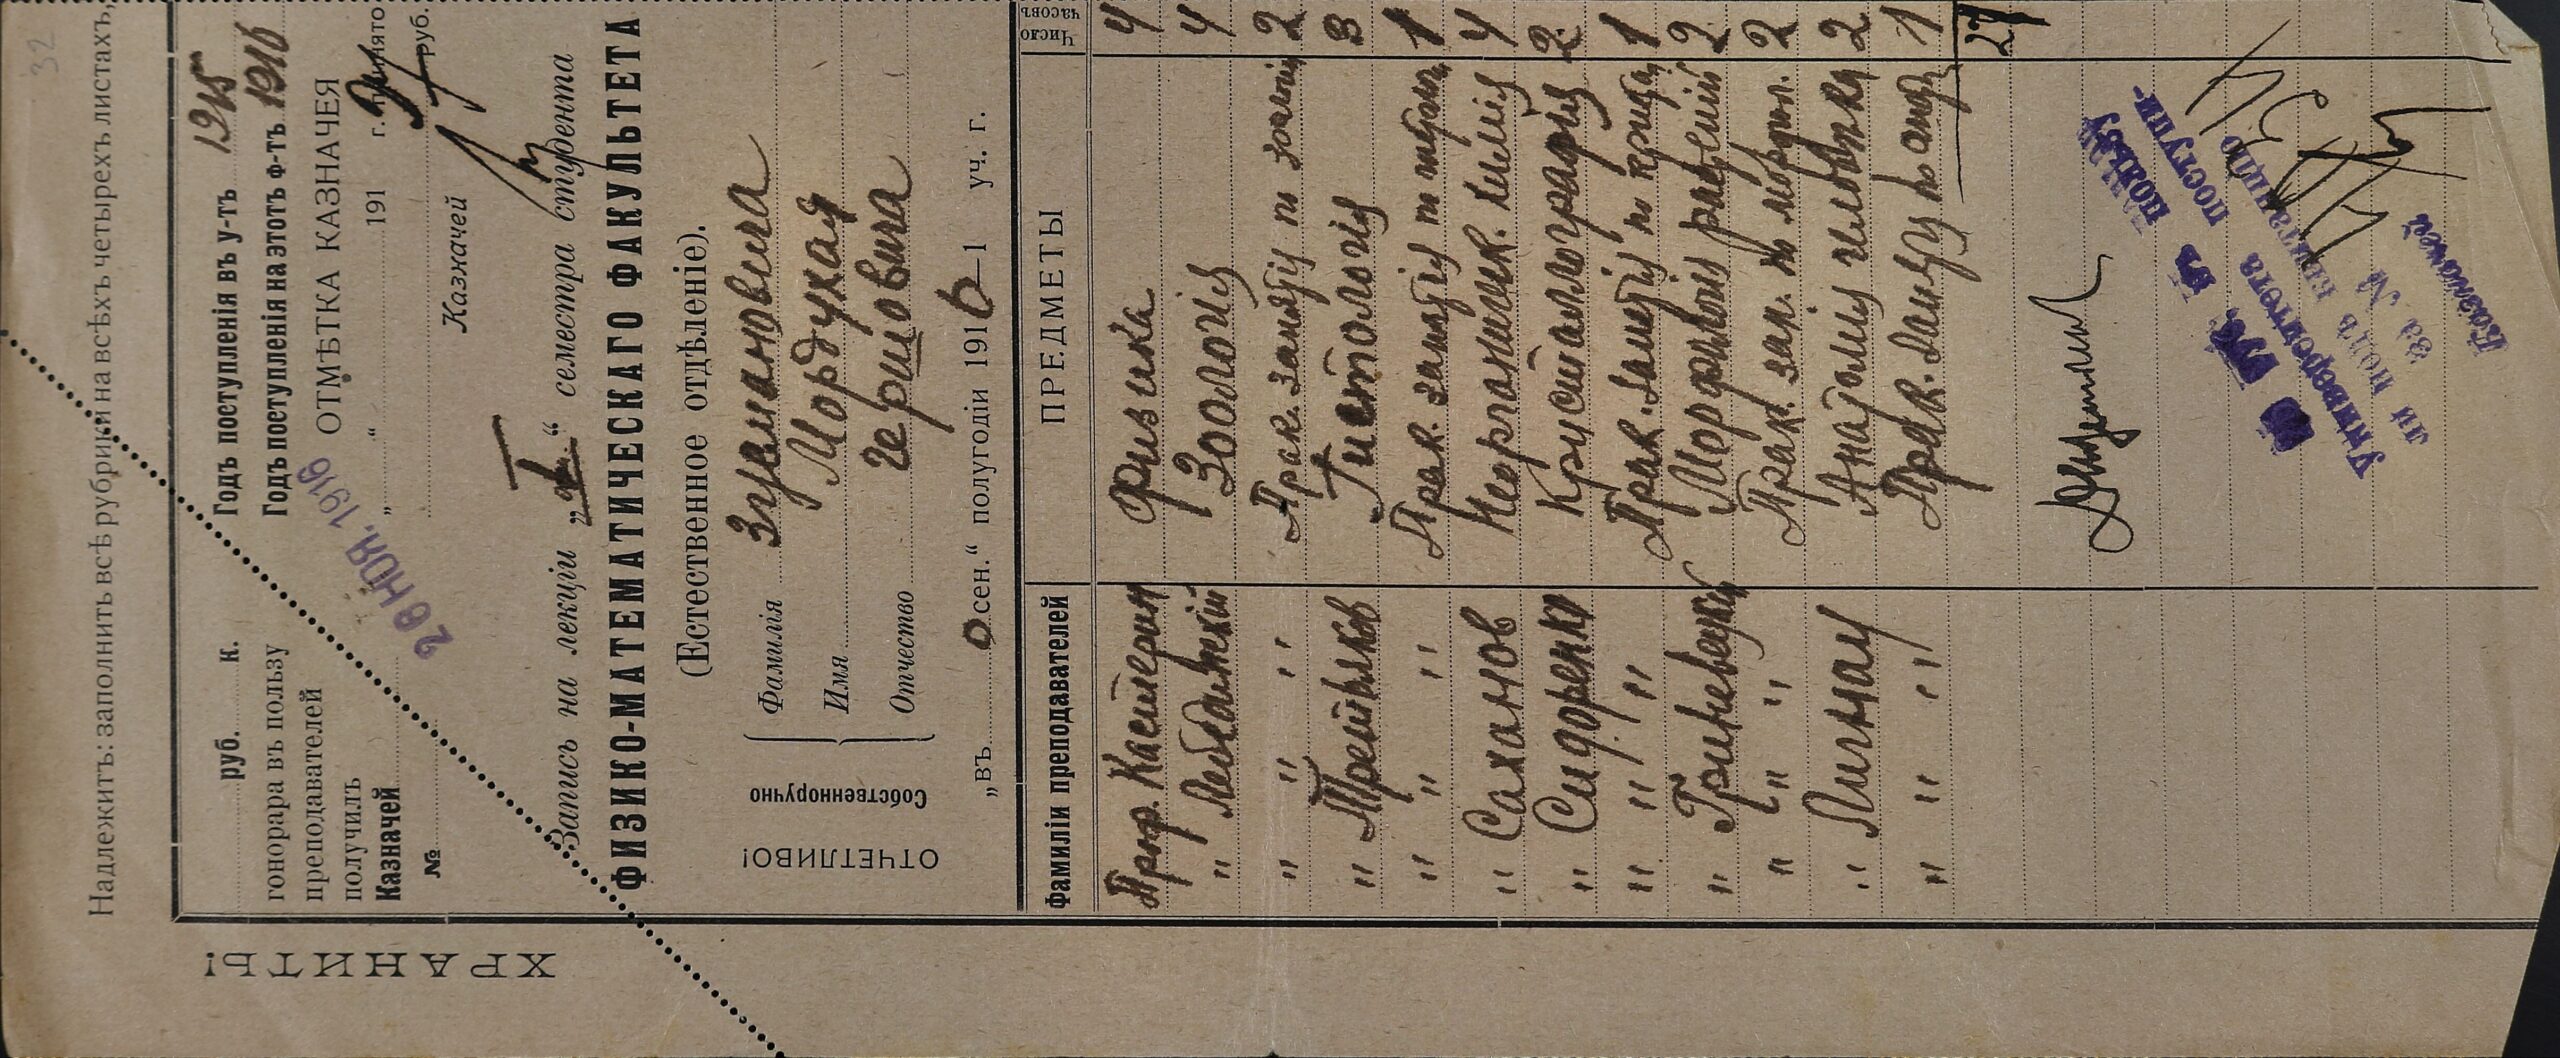 32
Надлежитъ: заполнить всѣ рубрики на всѣхъ четырехъ листахъ,
ХРАНИТЬ!
руб. к.
гонорара въ пользу
преподавателей
получилъ
Казначей
№
28 НОЯ. 1916
Годъ поступленія въ у-тъ 1915
Годъ поступленія на этотъ ф-тъ 1916
ОТМѢТКА КАЗНАЧЕЯ
„ “ 191 г. принято
руб.
Казначей
Запись на лекціи „I“ семестра студента
ФИЗИКО-МАТЕМАТИЧЕСКАГО ФАКУЛЬТЕТА
(Естественное отдѣленіе).
ОТЧЕТЛИВО!
Собственноручно
Фамилія Зузмановича
Имя Мордухая
Отчество Гершовича
„въ осен.“ полугодіи 1916—1 уч. г.
Фамиліи преподавателей ПРЕДМЕТЫ Число часовъ
Проф. Кастеринъ Физика 4
" Лебединскій Зоологія 4
" " " Прак. занятія по зоологіи 2
" Третьяков Гистологія 3
" " " Прак. занятія по гистол. 1
" Сахановъ Неорганическ. химія 4
" Сидоренко Кристаллографія 2
" " " Прак. занятія по криста. 1
" Гриневецкій Морфологія растеній 2
" " " Прак. зан. по морфол. 2
" Лигнау Анатомія человѣка 2
" " " Прак. занят. по анат. 1
27
руб. въ пользу
Университета поступи-
ли подъ квитанцію
за №
Казначей